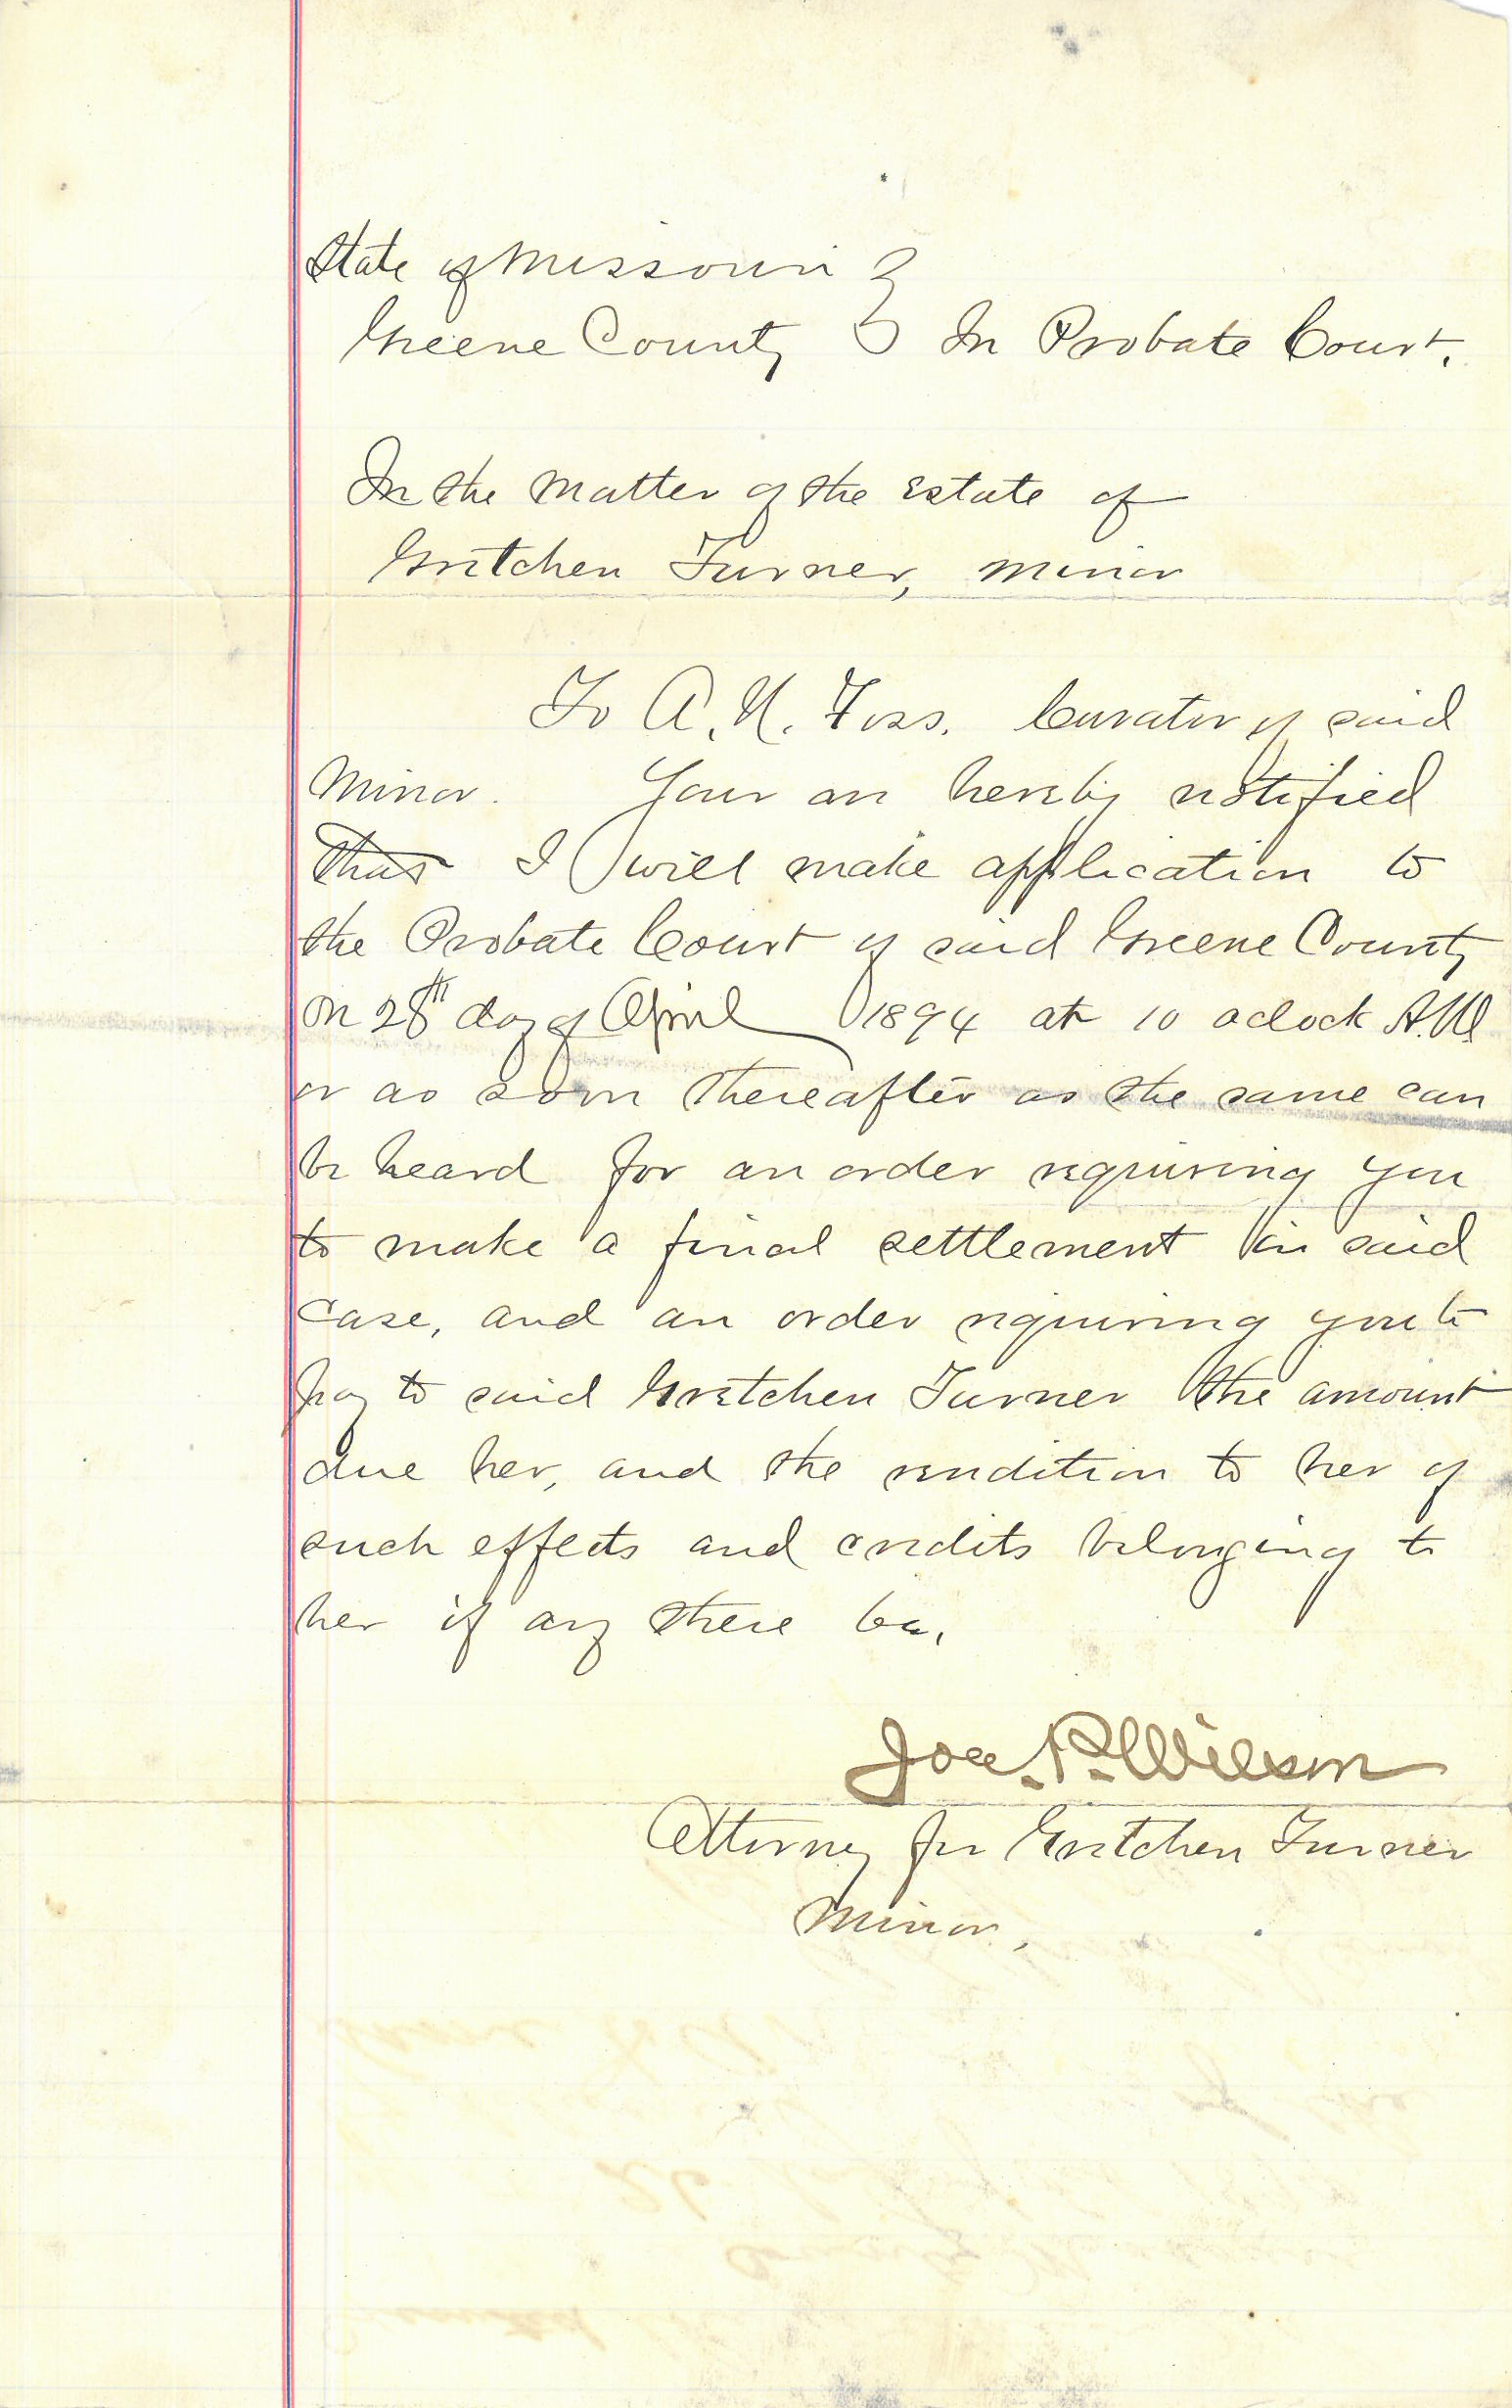 State of Missouri }
Greene County } In Probate Court.
In the Matter of the Estate of
Gretchen Turner, Minor
To A. N. Foss. Curator of said
Minor. Your are hereby notified
that I will make application to
the Probate Court of said Greene County
on 28th day of April 1894 at 10 oclock A.M
or as soon thereafter as the same can
be heard for an order requiring you
to make a final settlement in said
case, and an order requiring you to
pay to said Gretchen Turner the amount
due her, and the rendition to her of
such effects and credits belonging to
her if any there be.
Joe. P. Wilson
Attorney for Gretchen Turner
Minor.